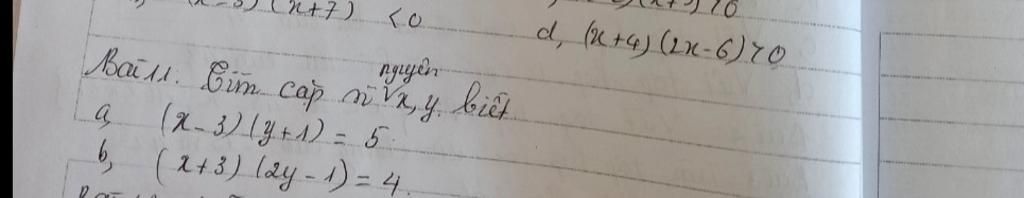 (x-3)(x+7) <0
d, (x+4)(2x-6)>0
Bài 11. Tìm cặp số nguyên x, y. biết.
a, (x-3)(y+1) = 5.
b, (x+3)(2y-1)=4.